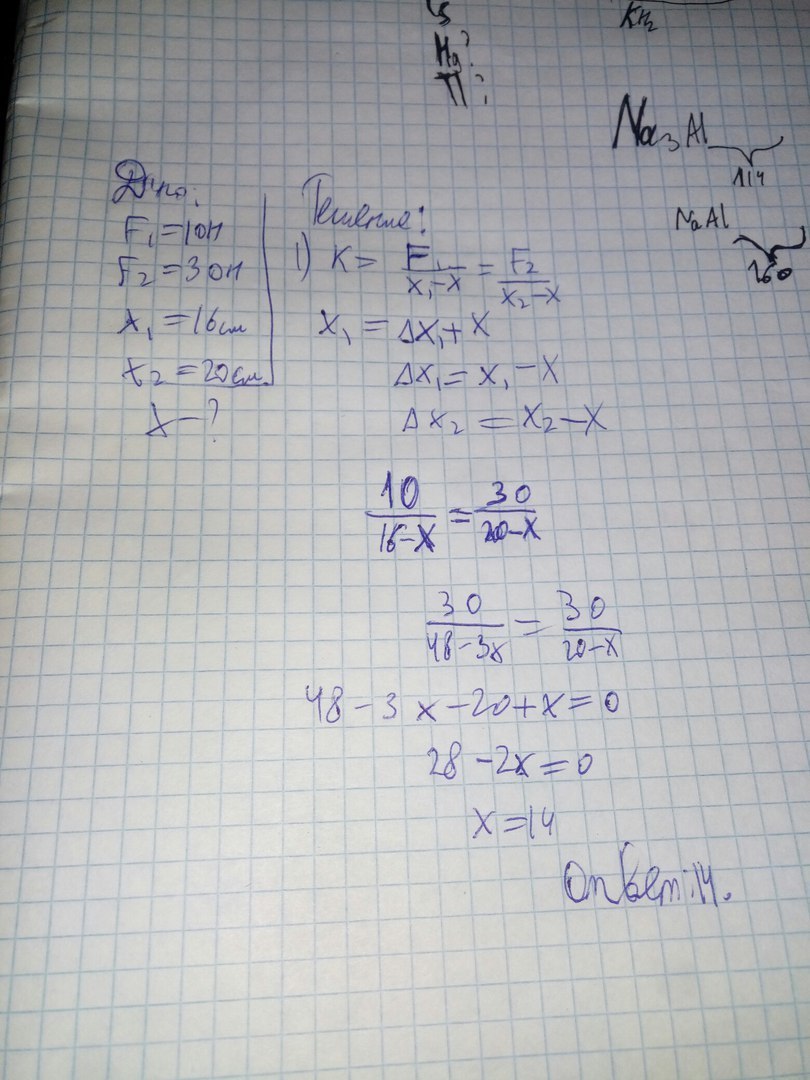 KH₂
Mg?
П?
Na₃Al
114
NaAl
260
Дано:
F₁=10Н
F₂=30Н
x₁=16см
x₂=20см
x-?
Решение:
1) K= F₁/(x₁-x) = F₂/(x₂-x)
x₁=Δx₁+x
Δx₁=x₁-x
Δx₂=x₂-x
10/(16-x) = 30/(20-x)
30/(48-3x) = 30/(20-x)
48-3x-20+x=0
28-2x=0
x=14
Ответ:14.